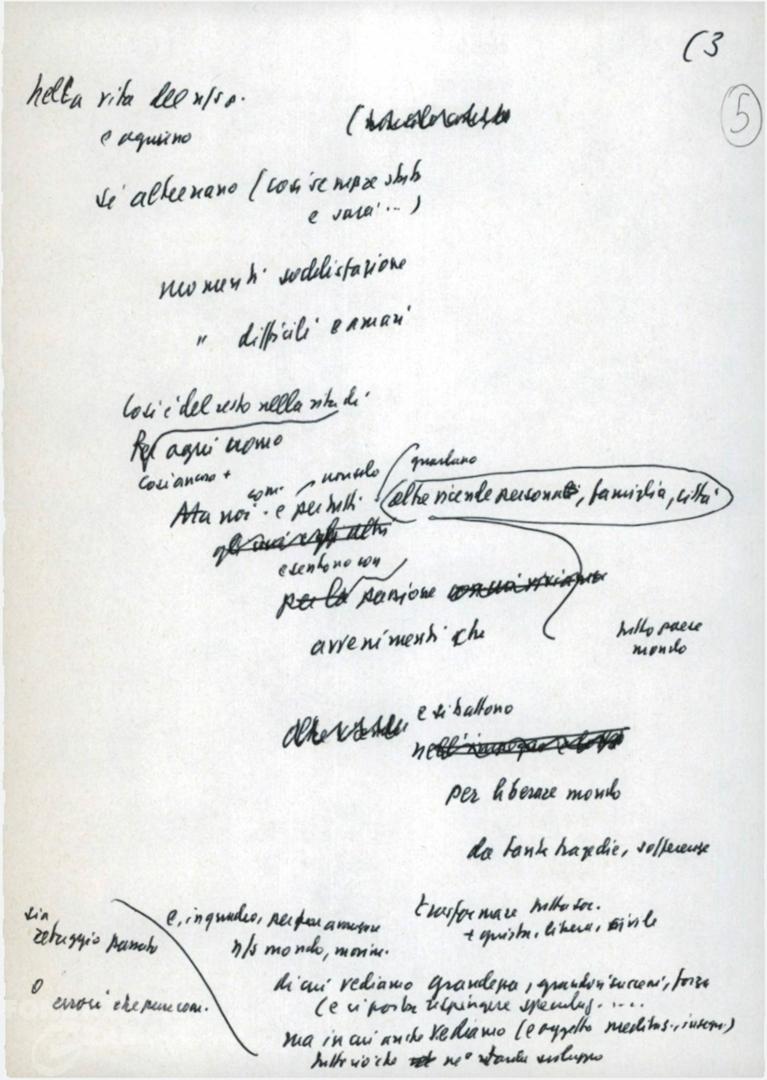 (3
5
nella vita del n/s p.
e ognuno
si alternano (così sempre stato
e sarà...)
momenti soddisfazione
" difficili e amari
Così è del resto nella vita di
Per ogni uomo
Così ancora +
Ma noi come e per tutti non solo guardano
altre vicende personali, famiglia, città
gli uni e gli altri
e sentono con
per la passione
avvenimenti che
tutto paese
mondo
e si battono
per liberare mondo
da tante tragedie, sofferenze
trasformare tutta soc.
+ giusta, libera, civile
sia
retaggio passato
o
errori che pure com.
e, in quadro, per
n/s mondo, movim.
di cui vediamo grandezza, grandi successi, forza
(e ci porta respingere speculaz. ....
ma in cui anche vediamo (e oggetto meditaz., insegn.)
tutto ciò che ne ritarda sviluppo